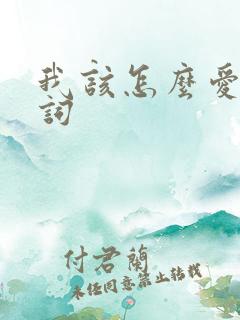 我該怎麼愛
詞
付君蘭
未經同意禁止轉載